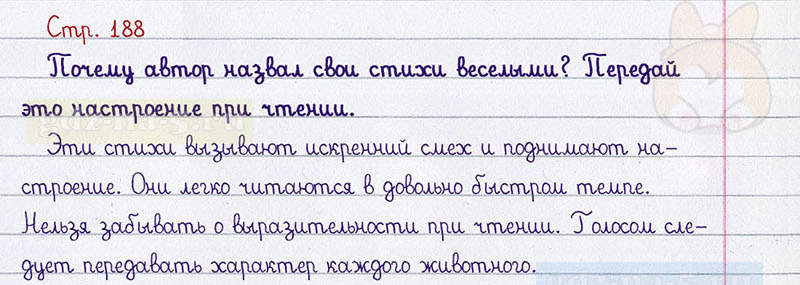 Стр. 188
Почему автор назвал свои стихи веселыми? Передай
это настроение при чтении.
Эти стихи вызывают искренний смех и поднимают на-
строение. Они легко читаются в довольно быстром темпе.
Нельзя забывать о выразительности при чтении. Голосом сле-
дует передавать характер каждого животного.